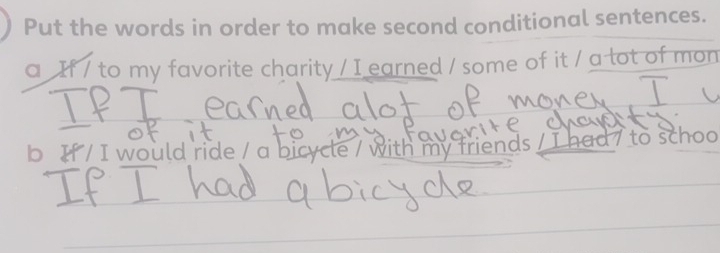 Put the words in order to make second conditional sentences.
a If / to my favorite charity / I earned / some of it / a lot of mon
If I earned alot of money I
of it to my favorite charity.
b If / I would ride / a bicycle / with my friends / I had / to schoo
If I had a bicycle